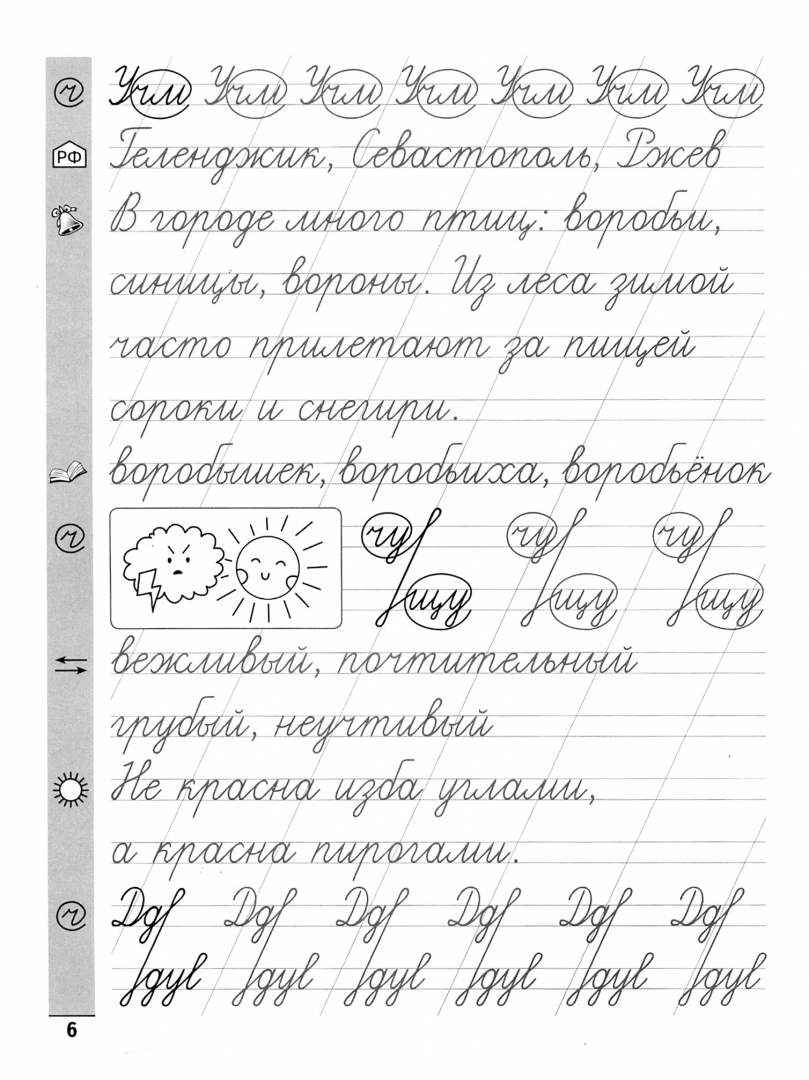 Учм Учм Учм Учм Учм Учм Учм
РФ
Геленджик, Севастополь, Ржев
В городе много птиц: воробьи,
синицы, вороны. Из леса зимой
часто прилетают за пищей
сороки и снегири.
воробышек, воробьиха, воробьёнок
чу чу чу
щу щу щу
вежливый, почтительный
грубый, неучтивый
Не красна изба углами,
а красна пирогами.
Дд Дд Дд Дд Дд Дд
дув дув дув дув дув дув
6